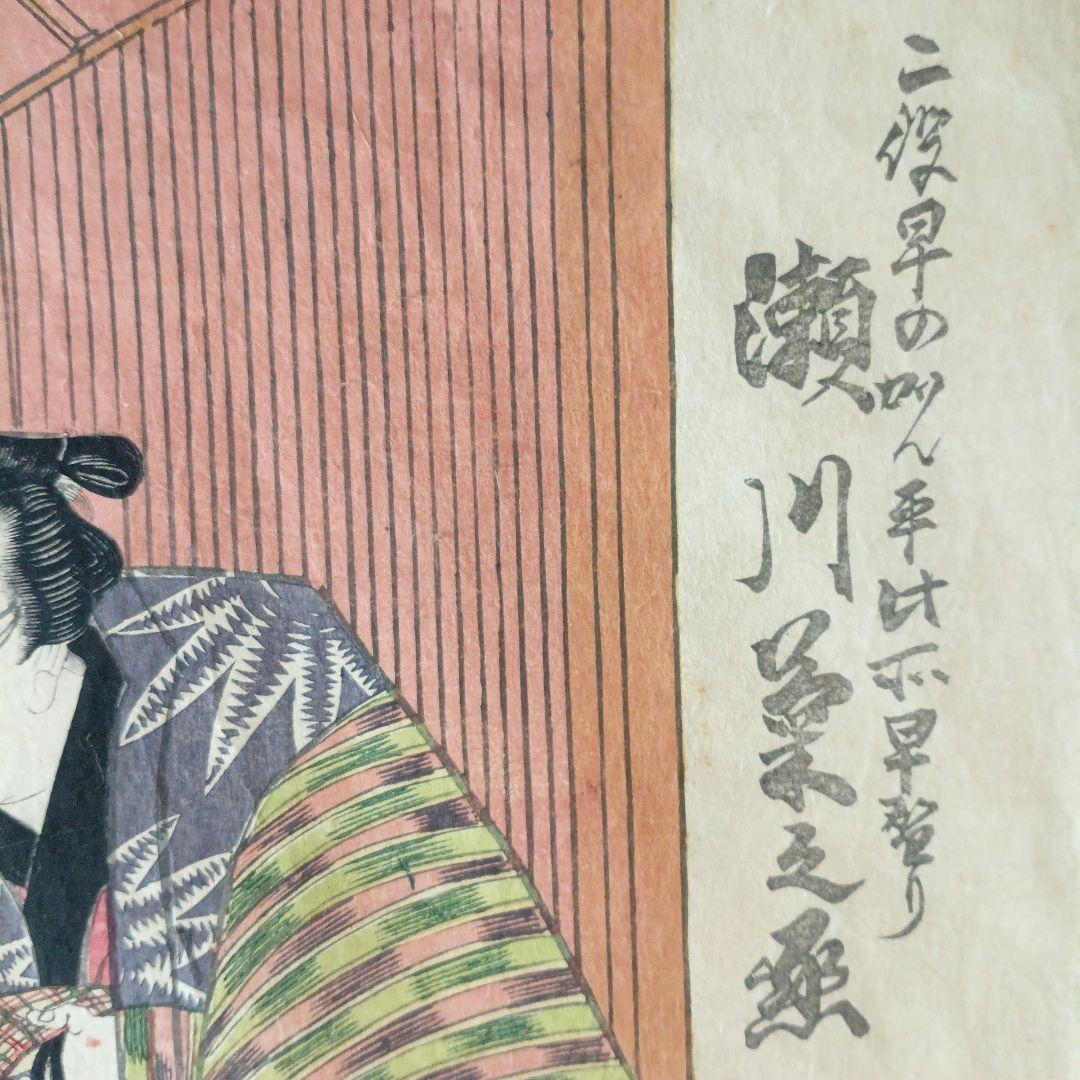 二役早のかん平此所早替り
瀬川菊之丞